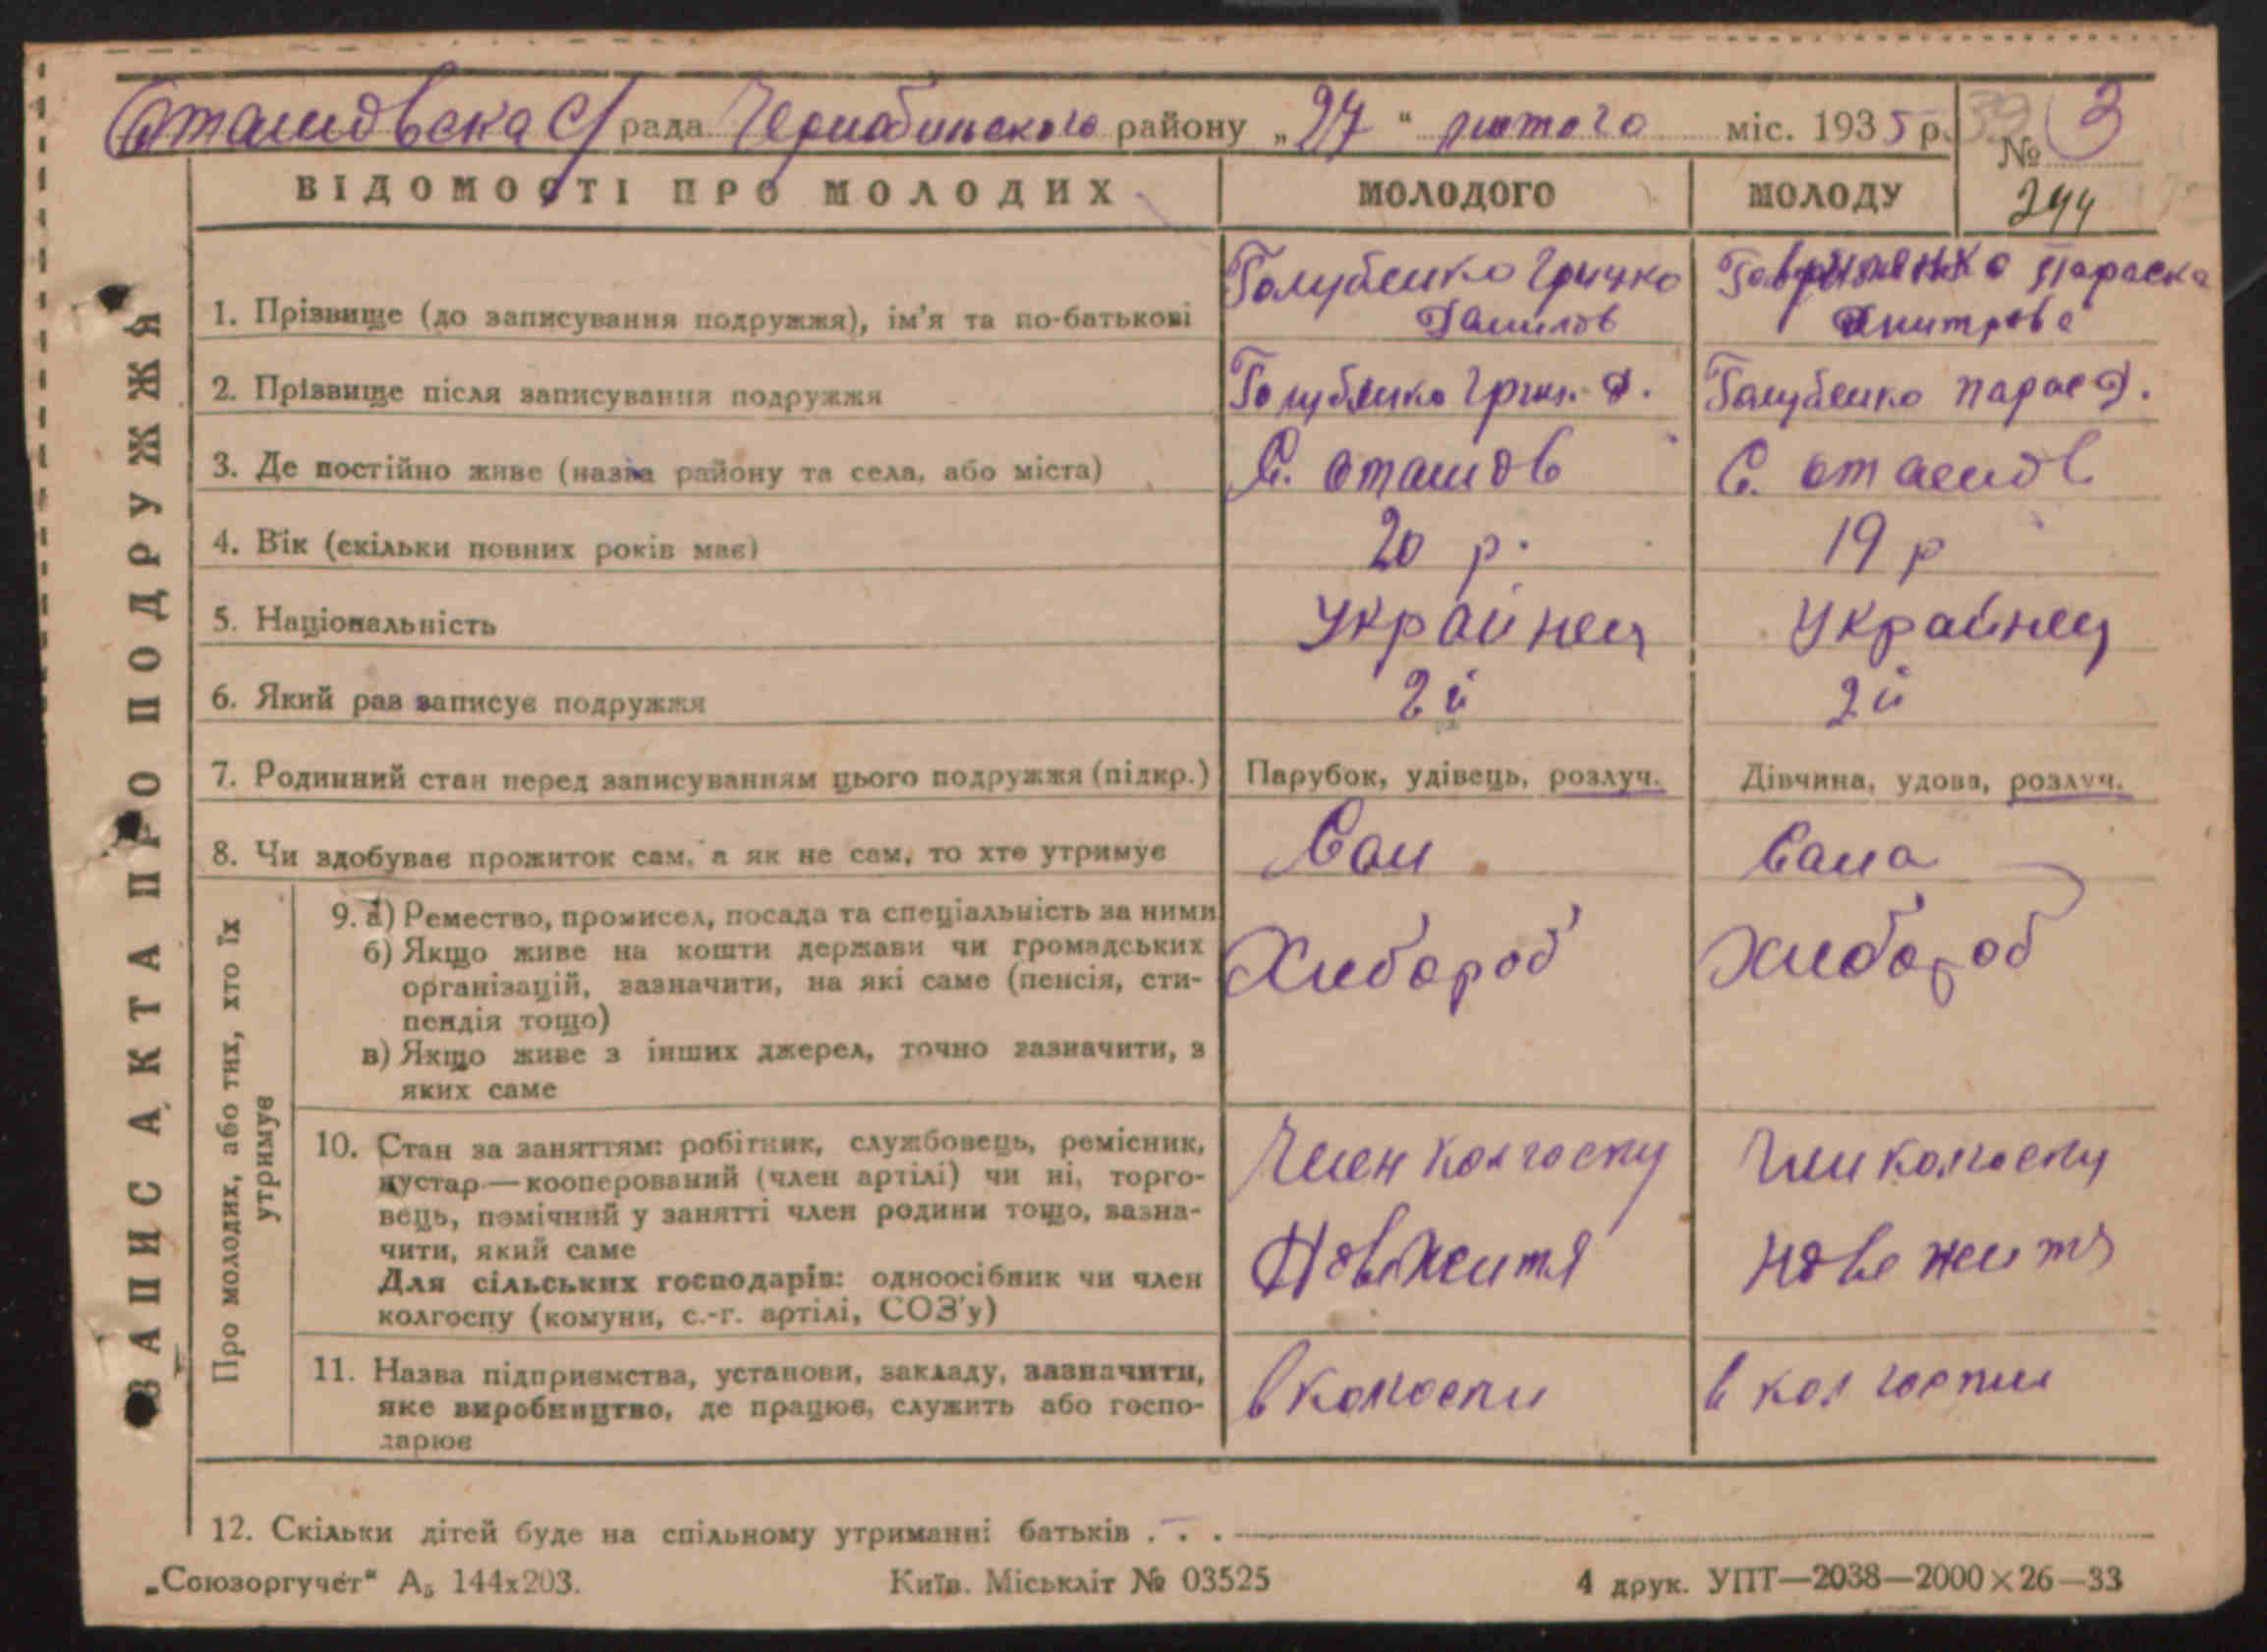 Оташовска С/ рада Чорнобильского району „27“ лютого міс. 1935 р. № 3
ВІДОМОСТІ ПРО МОЛОДИХ МОЛОДОГО МОЛОДУ 244
1. Прізвище (до записування подружжя), ім'я та по-батькові Голубенко Грицко Данилов Параска Дмитрова
2. Прізвище після записування подружжя Голубенко Гриц. Д. Голубенко Парас Д.
3. Де постійно живе (назва району та села, або міста) С. Оташов С. Оташов
4. Вік (скільки повних років має) 20 р. 19 р
5. Національність Украйнец Украйнец
6. Який раз записує подружжя 2й 2й
7. Родинний стан перед записуванням цього подружжя (підкр.) Парубок, удівець, розлуч. Дівчина, удова, розлуч.
8. Чи здобуває прожиток сам, а як не сам, то хто утримує Сам Сама
9. а) Ремество, промисел, посада та спеціальність за ними
б) Якщо живе на кошти держави чи громадських Хлібороб Хлібороб
організацій, зазначити, на які саме (пенсія, сти-
пендія тощо)
в) Якщо живе з інших джерел, точно зазначити, з
яких саме
10. Стан за заняттям: робітник, службовець, ремісник, Член колгоспу Член колгоспу
кустар—кооперований (член артілі) чи ні, торго-
вець, помічний у занятті член родини тощо, зазна-
чити, який саме Нове житя Нове житя
Для сільських господарів: одноосібник чи член
колгоспу (комуни, с.-г. артілі, СОЗ'у)
11. Назва підприємства, установи, закладу, зазначити, в колгоспи в колгоспи
яке виробництво, де працює, служить або госпо-
дарює
12. Скільки дітей буде на спільному утриманні батьків . . .
„Союзоргучёт“ А₅ 144х203. Київ. Міськліт № 03525 4 друк. УПТ—2038—2000×26—33
ЗАПИС АКТА ПРО ПОДРУЖЖЯ
Про молодих, або тих, хто їх
утримує